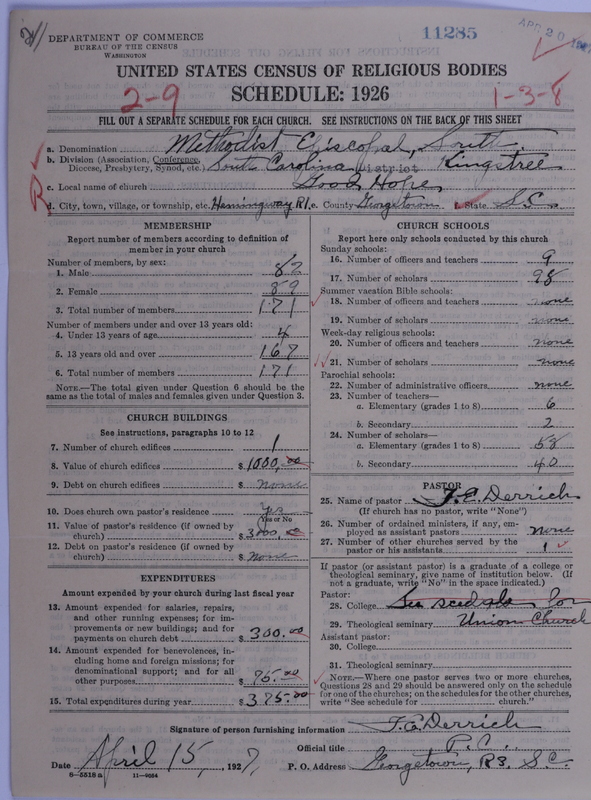 DEPARTMENT OF COMMERCE
BUREAU OF THE CENSUS
WASHINGTON
11285
APR 20
UNITED STATES CENSUS OF RELIGIOUS BODIES
SCHEDULE: 1926
2-9
1-3-8
FILL OUT A SEPARATE SCHEDULE FOR EACH CHURCH. SEE INSTRUCTIONS ON THE BACK OF THIS SHEET
a. Denomination Methodist Episcopal, South
b. Division (Association, Conference, Diocese, Presbytery, Synod, etc.) South Carolina District Kingstree
c. Local name of church Good Hope
d. City, town, village, or township, etc. Hemingway R1, e. County Georgetown f. State S.C.
MEMBERSHIP
Report number of members according to definition of member in your church
Number of members, by sex:
1. Male 82
2. Female 89
3. Total number of members 171
Number of members under and over 13 years old:
4. Under 13 years of age 4
5. 13 years old and over 167
6. Total number of members 171
NOTE.—The total given under Question 6 should be the same as the total of males and females given under Question 3.
CHURCH BUILDINGS
See instructions, paragraphs 10 to 12
7. Number of church edifices 1
8. Value of church edifices $1000.00
9. Debt on church edifices $ None
10. Does church own pastor's residence yes
Yes or No
11. Value of pastor's residence (if owned by church) $3000.00
12. Debt on pastor's residence (if owned by church) $ None
EXPENDITURES
Amount expended by your church during last fiscal year
13. Amount expended for salaries, repairs, and other running expenses; for improvements or new buildings; and for payments on church debt $300.00
14. Amount expended for benevolences, including home and foreign missions; for denominational support; and for all other purposes $75.00
15. Total expenditures during year $375.00
CHURCH SCHOOLS
Report here only schools conducted by this church
Sunday schools:
16. Number of officers and teachers 9
17. Number of scholars 98
Summer vacation Bible schools:
18. Number of officers and teachers none
19. Number of scholars none
Week-day religious schools:
20. Number of officers and teachers none
21. Number of scholars none
Parochial schools:
22. Number of administrative officers none
23. Number of teachers—
a. Elementary (grades 1 to 8) 6
b. Secondary 2
24. Number of scholars—
a. Elementary (grades 1 to 8) 58
b. Secondary 40
PASTOR
25. Name of pastor J. E. Derrick
(If church has no pastor, write "None")
26. Number of ordained ministers, if any, employed as assistant pastors none
27. Number of other churches served by the pastor or his assistants 1
If pastor (or assistant pastor) is a graduate of a college or theological seminary, give name of institution below. (If not a graduate, write "No" in the space indicated.)
Pastor:
28. College See scedule for
29. Theological seminary Union Church
Assistant pastor:
30. College
31. Theological seminary
NOTE.—Where one pastor serves two or more churches, Questions 28 and 29 should be answered only on the schedule for one of the churches; on the schedules for the other churches, write "See schedule for church."
Signature of person furnishing information J. E. Derrick
Official title P. C.
Date April 15, 1927, P. O. Address Georgetown, R3, S.C.
8—5518a 11—9664